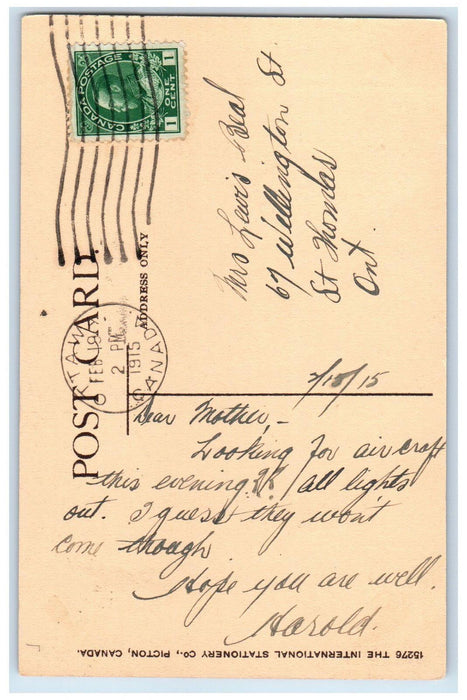 CANADA POSTAGE
1 ONE CENT 1
POST CARD.
ADDRESS ONLY
OTTAWA
FEB 18
2 PM
1915
CANADA
Mrs Lewis Beal
67 Wellington St.
St Thomas
Ont.
2/18/15
Dear Mother, –
Looking for aircraft
this evening !! all lights
out. I guess they won't
come though
Hope you are well.
Harold.
15276 THE INTERNATIONAL STATIONERY CO., PICTON, CANADA.